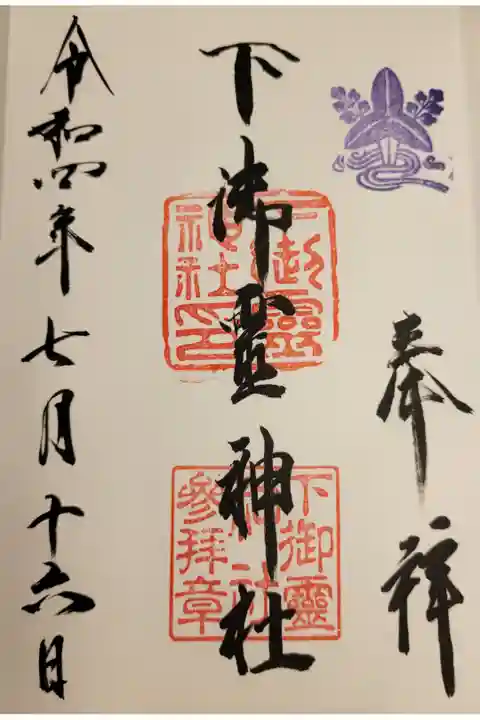 奉拝
下御靈神社
下御靈
神社印
下御靈
神社
參拝章
令和四年七月十六日